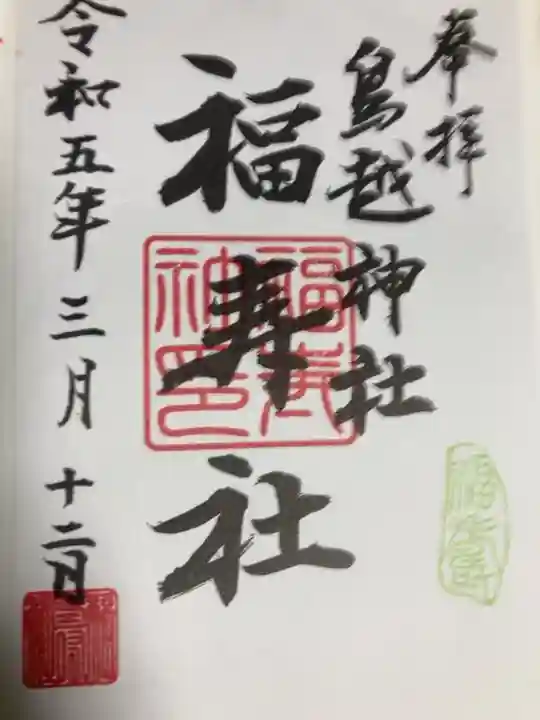 奉拝
鳥越神社
福寿社
令和五年三月十二日